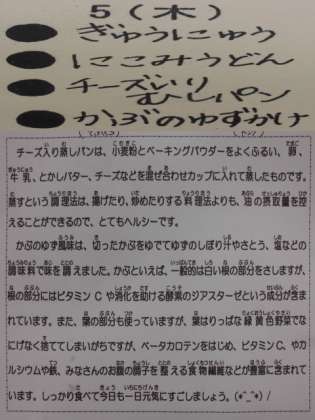 5(木)
● ぎゅうにゅう
● にこみうどん
● チーズいり
むしパン
● かぶのゆずかけ
チーズ入り蒸しパンは、小麦粉とベーキングパウダーをよくふるい、卵、
牛乳、とかしバター、チーズなどを混ぜ合わせカップに入れて蒸したものです。
蒸すという調理法は、揚げたり、炒めたりする料理法よりも、油の摂取量を控
えることができるので、とてもヘルシーです。
かぶのゆず風味は、切ったかぶをゆでてゆずのしぼり汁やさとう、塩などの
調味料で味を調えました。かぶといえば、一般的は白い根の部分をさしますが、
根の部分にはビタミンCや消化を助ける酵素のジアスターゼという成分が含ま
れています。また、葉の部分も使っていますが、葉はりっぱな緑黄色野菜でな
にげなく捨ててしまいがちですが、ベータカロテンをはじめ、ビタミンC、やカ
ルシウムや鉄、みなさんのお腹の調子を整える食物繊維などが豊富に含まれて
います。しっかり食べて今日も一日元気にすごしましょう。(*^_^*)/